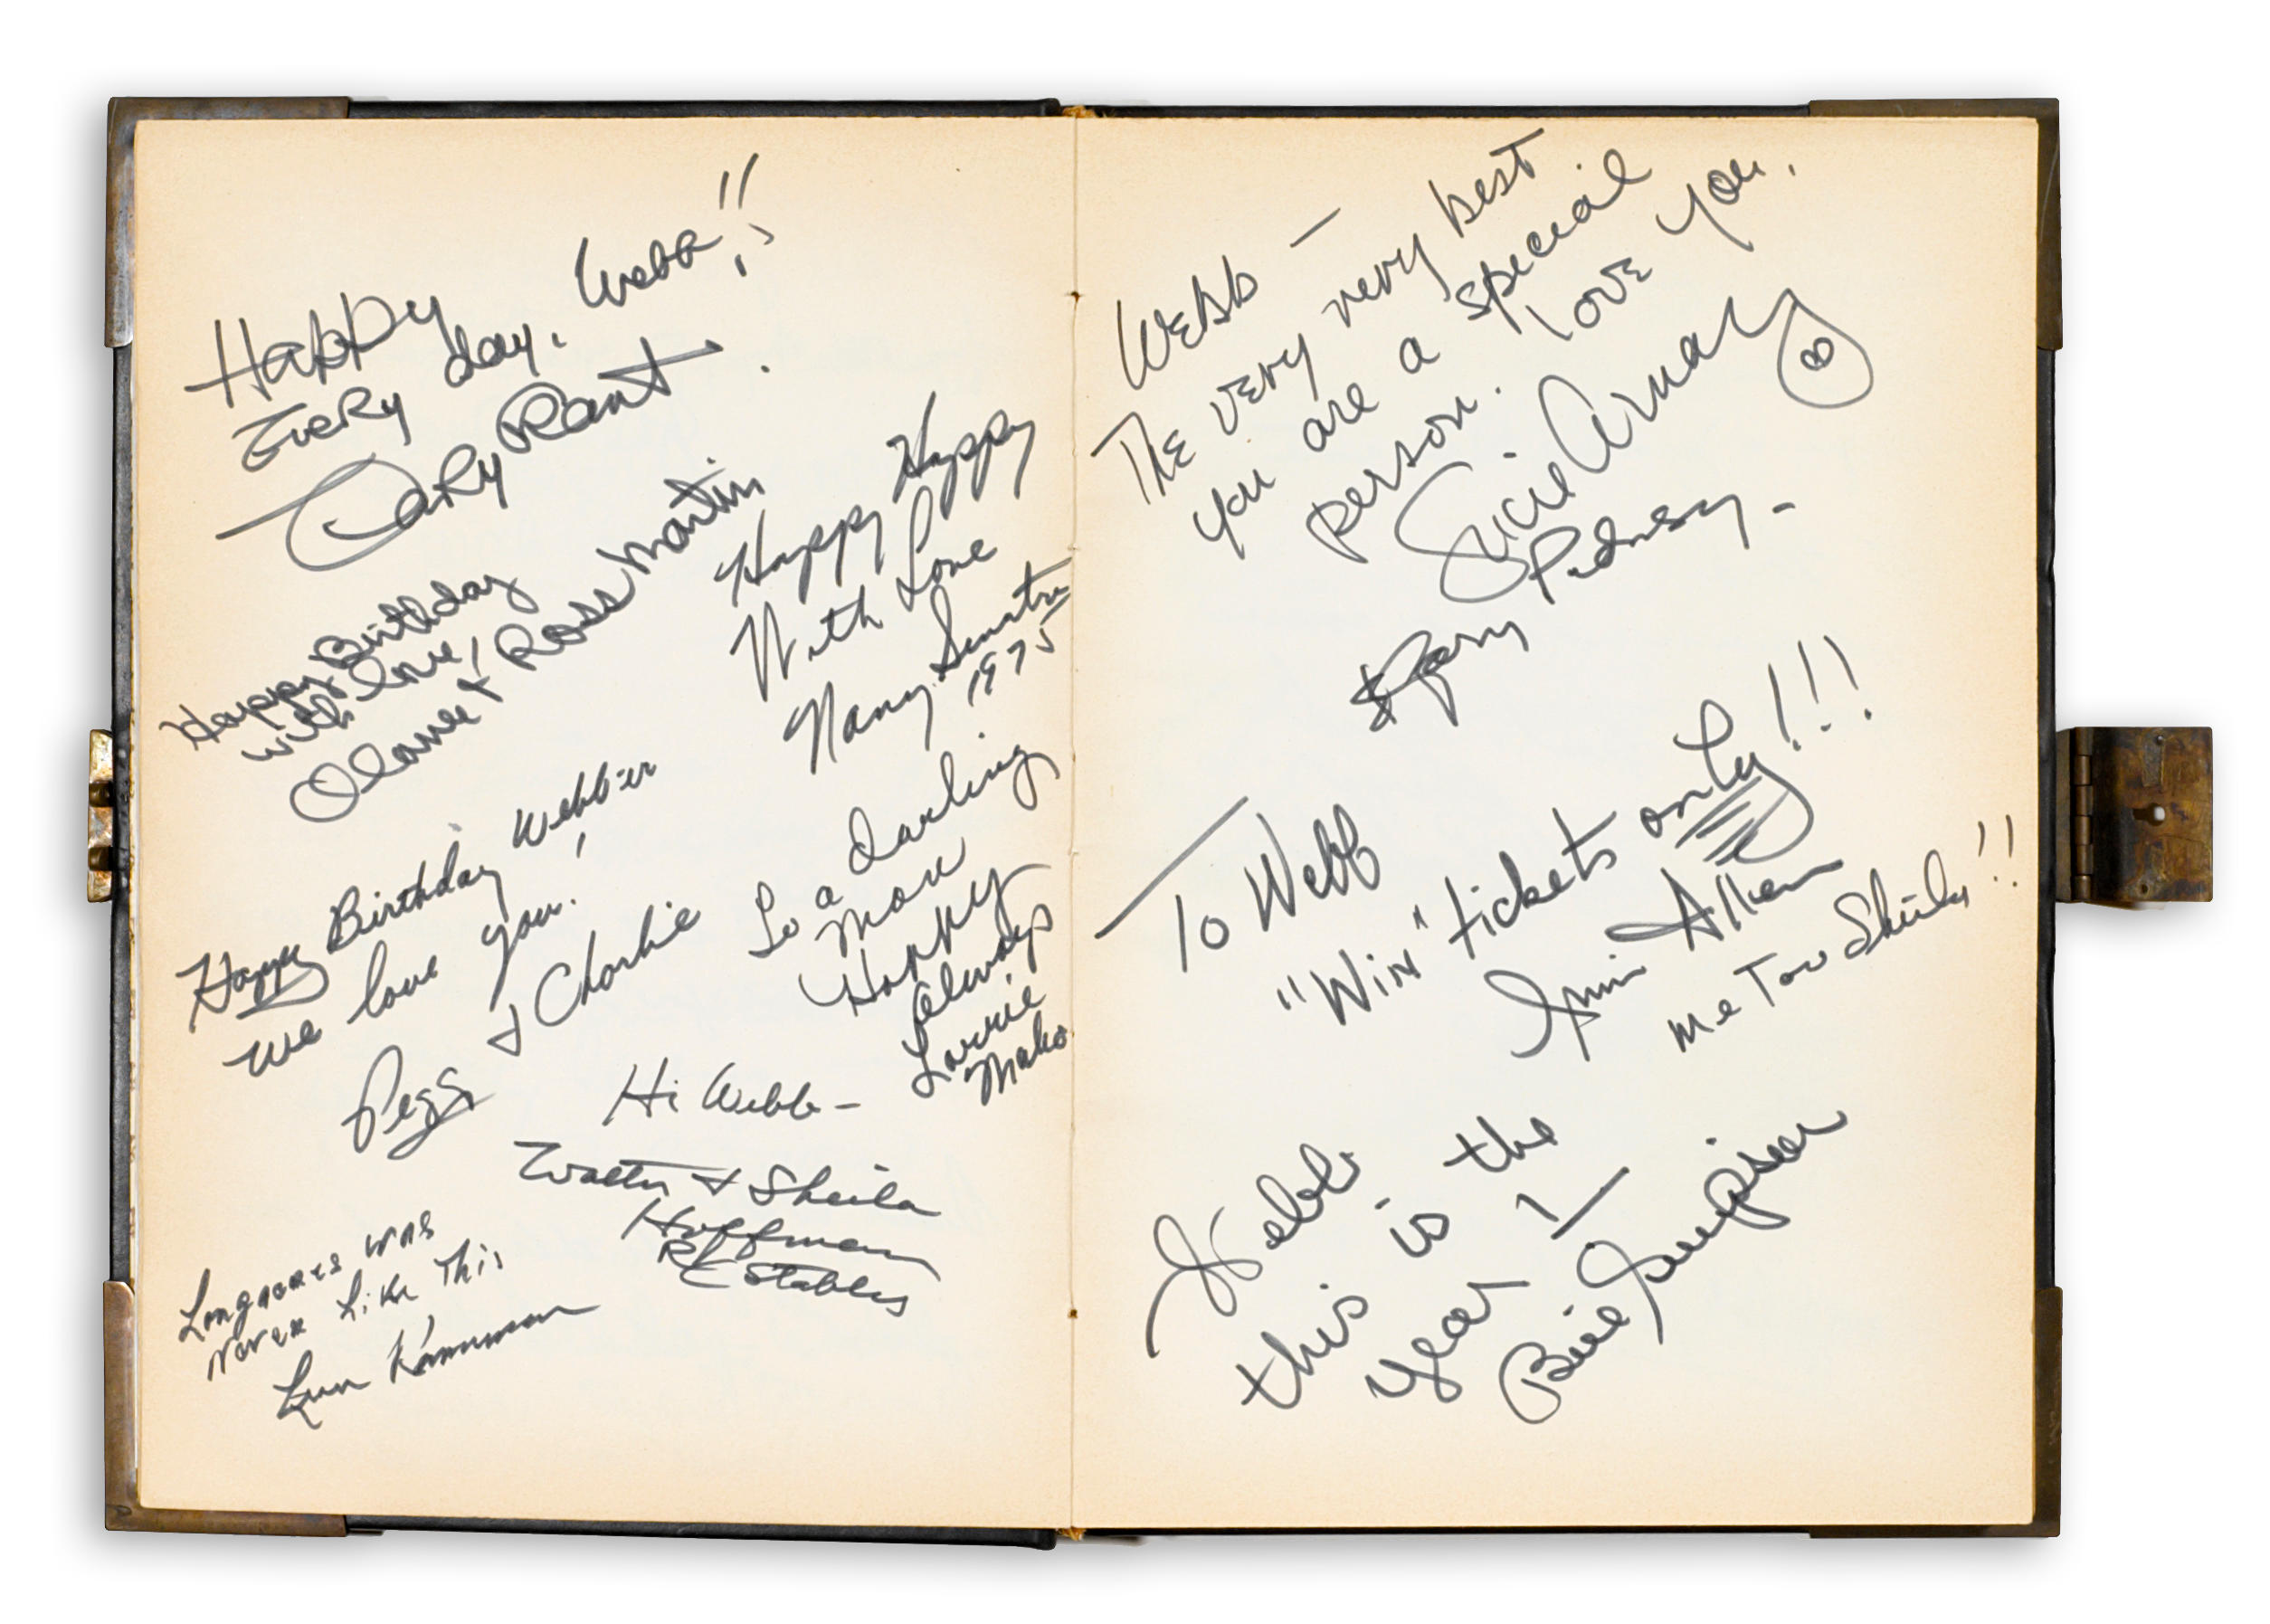 Happy
Every day. Webb!!
Cary Grant.
Happy Birthday
with love,
Olavee + Ross Martin
Happy Happy Happy
With Love
Nancy Sinatra
1975
Happy Birthday Webber
we love you!
Pegg & Charlie
To a darling
man
Happy
Always
Lorrie
Mako
Hi Webb-
Walter & Sheila
Huffman
RC Stables
Longacres was
Never Like This
Webb -
The very very best
you are a special
person. love you.
Lucie Arnaz
& Gary
To Webb
"Win" tickets only!!!
Irwin Allen
Me Too Sheila!!
Webb
this is the
year!